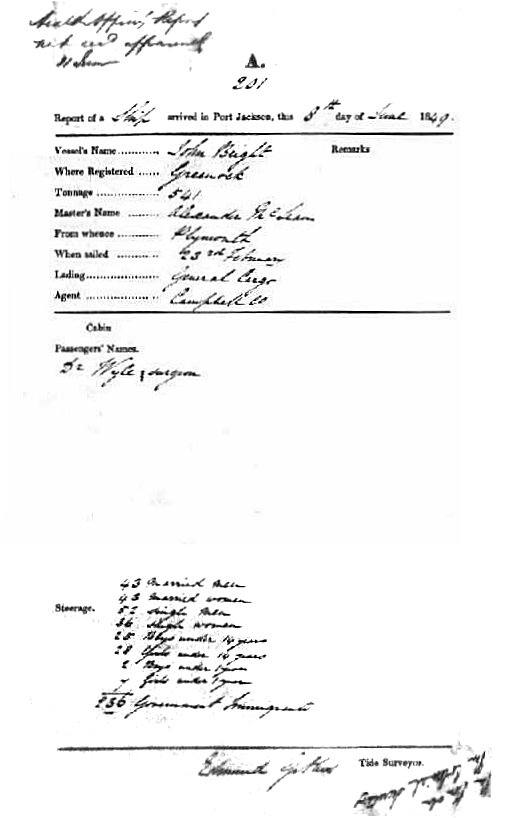 Health Officer's Report
not
A.
201
Report of a Ship arrived in Port Jackson, this 8th day of June 1849.
Vessel's Name ............ John Bright Remarks
Where Registered ...... Greenock
Tonnage .................. 541
Master's Name ......... Alexander McLean
From whence ............ Plymouth
When sailed ............ 23rd February
Lading..................... General Cargo
Agent ..................... Campbell Co
Cabin
Passengers' Names.
Dr Wyle, surgeon
43 Married men
43 married women
Steerage. 52 single men
36 single women
25 Boys under 14 years
28 Girls under 14 years
2 Boys under 1 year
7 Girls under 1 year
236 Government Immigrants
Edmund Tide Surveyor.